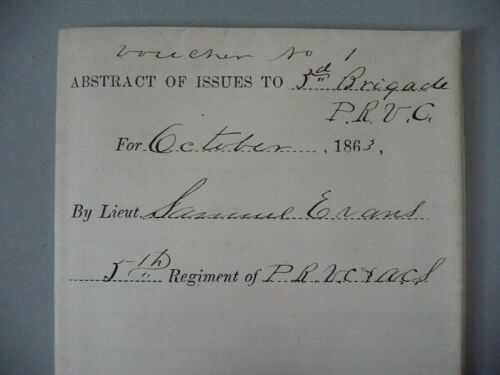 Voucher No 1
ABSTRACT OF ISSUES TO 3d Brigade
P.R.V.C.
For October, 1863,
By Lieut. Samuel Evans
5th Regiment of P.R.V.C & ACS